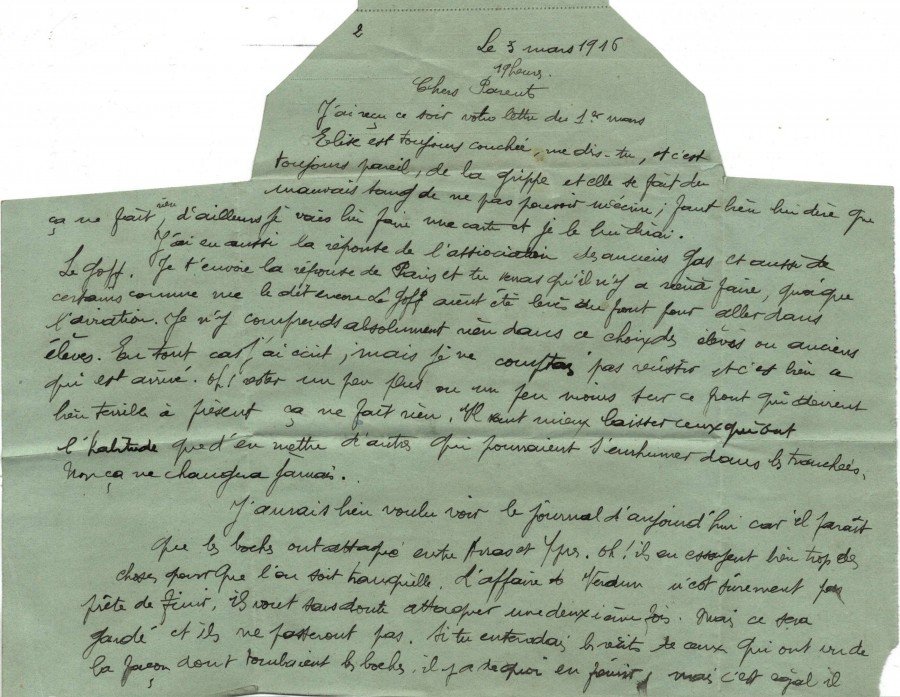 2
Le 3 mars 1916
19 heures.
Chers Parents
J'ai reçu ce soir votre lettre du 1er mars
Elise est toujours couchée, me dis-tu, et c'est
toujours pareil, de la grippe et elle se fait du
mauvais sang de ne pas pouvoir m'écrire; faut bien lui dire que
ça ne fait rien, d'ailleurs je vais lui faire une carte et je le lui dirai.
J'ai eu aussi la réponse de l'association des anciens Gas et aussi de
Le Goff. Je t'envoie la réponse de Paris et tu verras qu'il n'y a rien à faire, quoique
certains comme me le dit encore Le Goff aient été levés du front pour aller dans
l'aviation. Je n'y comprends absolument rien dans ce choix des élèves ou anciens
élèves. En tout cas j'ai écrit; mais je ne comptais pas réussir et c'est bien ce
qui est arrivé. Oh! rester un peu plus ou un peu moins sur ce front qui devient
bien terrible à présent ça ne fait rien. Il vaut mieux laisser ceux qui ont
l'habitude que d'en mettre d'autres qui pourraient s'enrhumer dans les tranchées.
Non ça ne changera jamais.
J'aurais bien voulu voir le journal d'aujourd'hui car il paraît
que les boches ont attaqué entre Arras et Ypres. Oh! ils en essayent bien trop des
choses pour que l'on soit tranquille. L'affaire de Verdun n'est sûrement pas
prête de finir, ils vont sans doute attaquer une deuxième fois. Mais ce sera
gardé et ils ne passeront pas. Si tu entendais les récits de ceux qui ont vu de
la façon dont tombaient les boches, il y a de quoi en frémir, mais c'est égal il